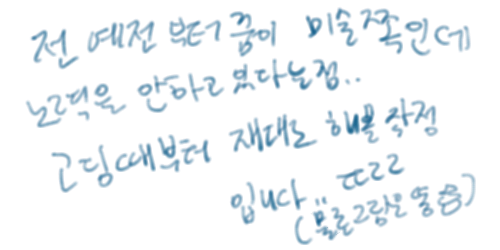 전 예전 부터 꿈이 미술쪽인데
노력을 안하고 있다는점..
고딩때부터 재대로 해볼 작정
입니다.. ㄸㄹㄹ
(물론그림은 좋음)